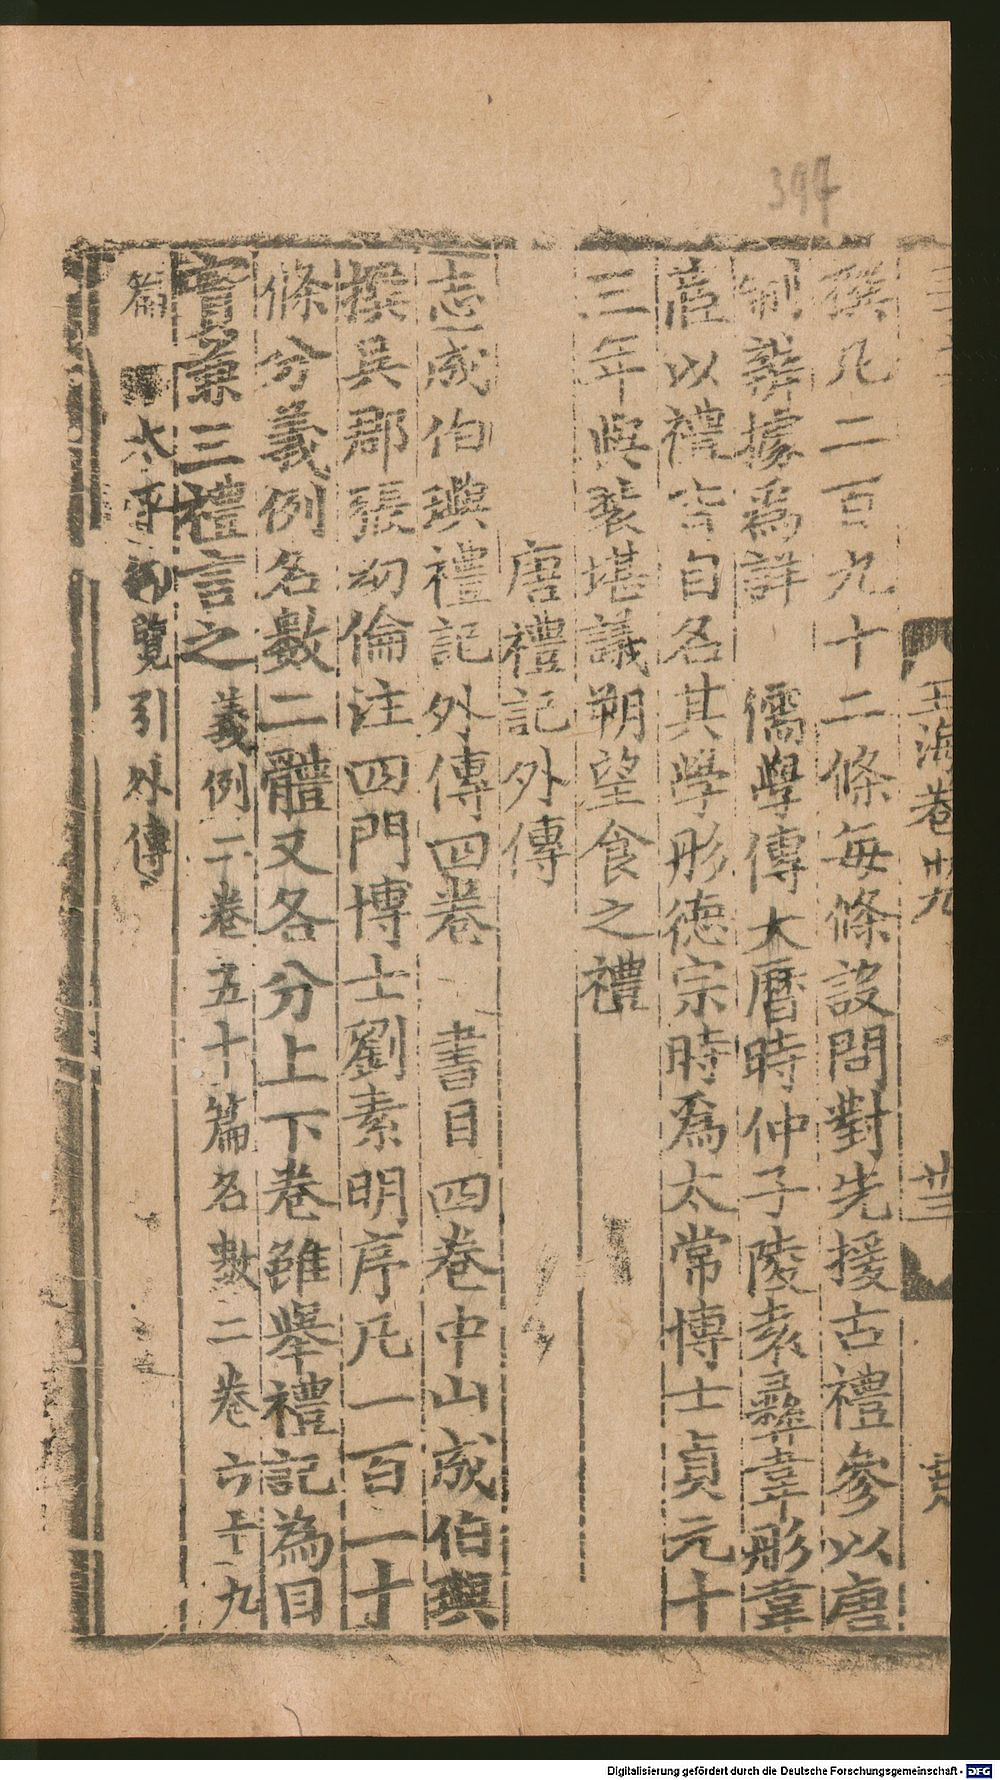 394
玉海卷卅九
卅三
撰凡二百九十二條每條設問對先援古禮參以唐
制辨據爲詳 儒學傳大曆時仲子陵袁彝韋彤韋
茝以禮名其學彤德宗時爲太常博士貞元十
三年與裴堪議朔望食之禮
唐禮記外傳
志成伯璵禮記外傳四卷 書目四卷中山成伯璵
撰吳郡張幼倫注四門博士劉素明序凡一百一十
條分義例名數二體又各分上下卷雖舉禮記為目
實兼三禮言之 義例二卷五十篇名數二卷六十九
篇 太平御覽引外傳
Digitalisierung gefördert durch die Deutsche Forschungsgemeinschaft - DFG